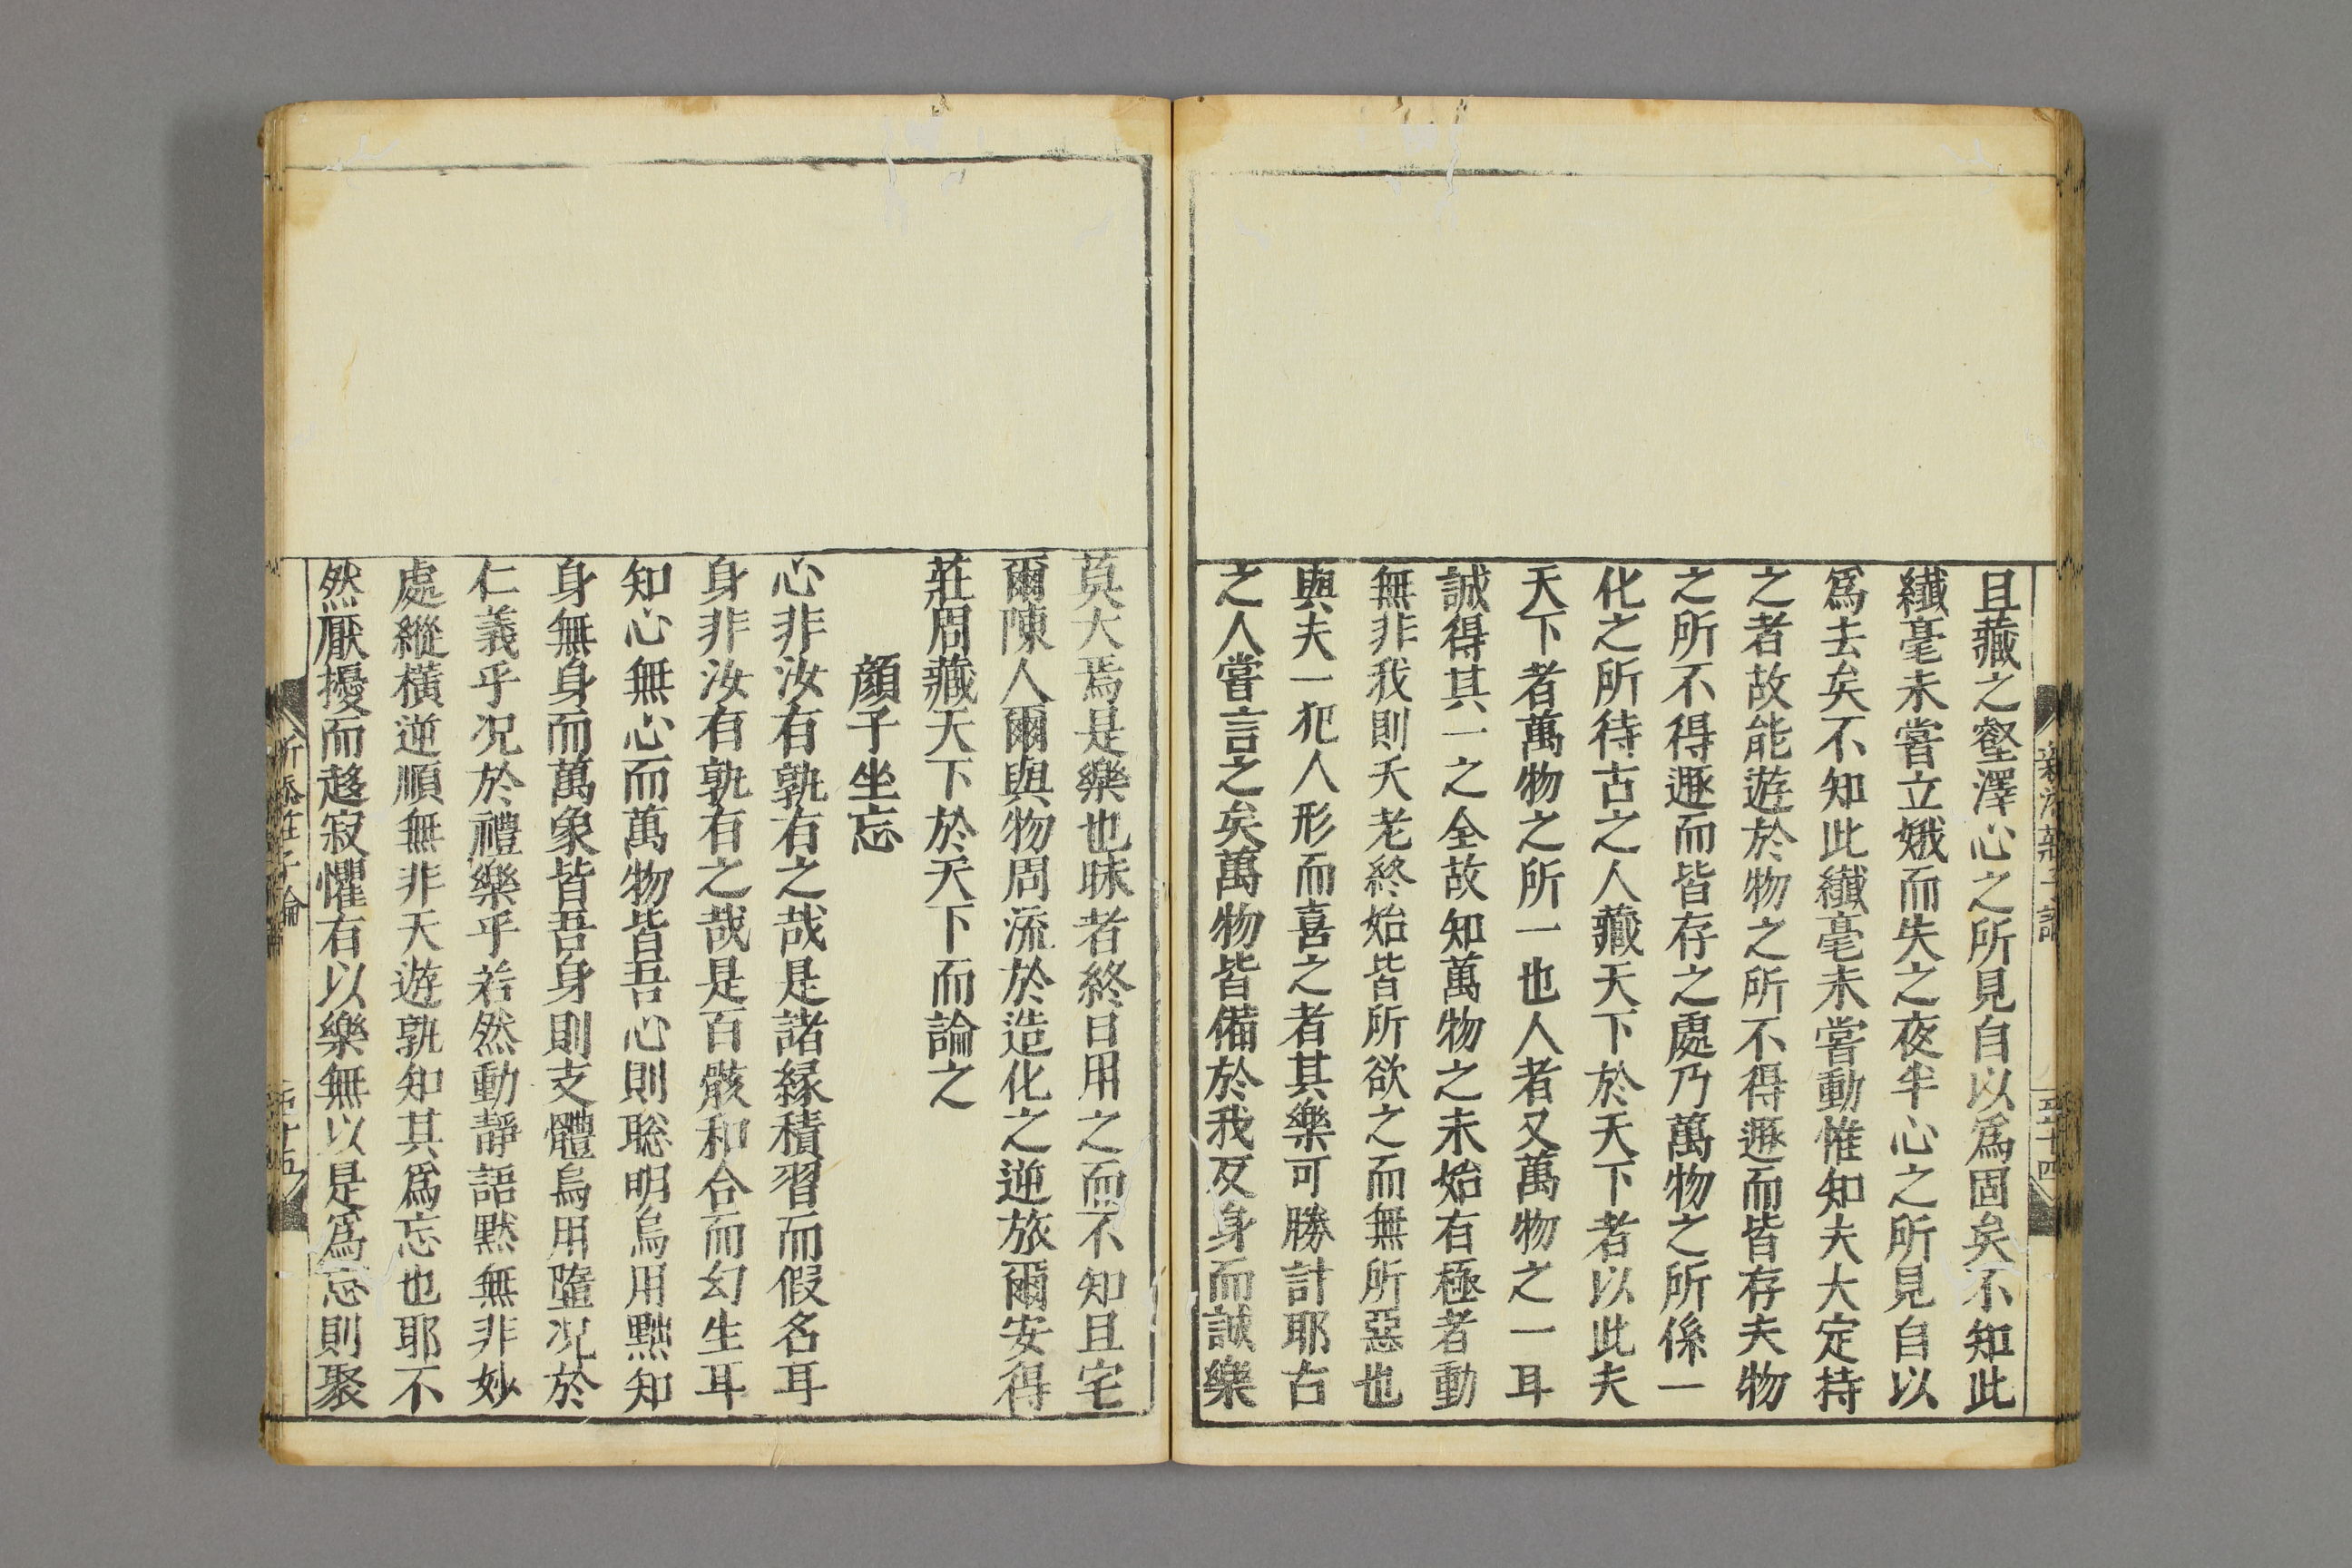 且藏之壑澤心之所見自以爲固矣不知此
纎毫未嘗立娥而失之夜半心之所見自以
爲去矣不知此纎毫未嘗動惟知夫大定持
之者故能遊於物之所不得遯而皆存夫物
之所不得遯而皆存之處乃萬物之所係一
化之所待古之人藏天下於天下者以此夫
天下者萬物之所一也人者又萬物之一耳
誠得其一之全故知萬物之未始有極者動
無非我則夭老終始皆所欲之而無所惡也
與夫一犯人形而喜之者其樂可勝計耶古
之人嘗言之矣萬物皆備於我反身而誠樂
五十四
莫大焉是樂也昧者終日用之而不知且宅
爾陳人爾與物周流於造化之逆旅爾安得
莊周藏天下於天下而論之
顔子坐忘
心非汝有孰有之哉是諸緣積習而假名耳
身非汝有孰有之哉是百骸和合而幻生耳
知心無心而萬物皆吾心則聡明烏用黜知
身無身而萬象皆吾身則支體烏用墮况於
仁義乎况於禮樂乎若然動靜語黙無非妙
處縱橫逆順無非天遊孰知其爲忘也耶不
然厭擾而趍寂懼有以樂無以是爲忘則聚